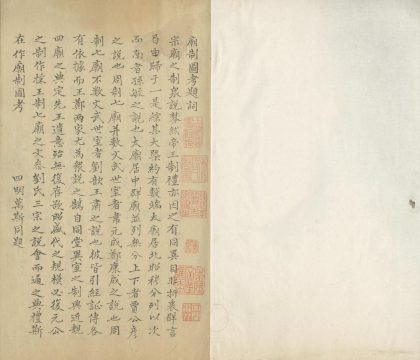 廟制圖考題詞
宗廟之制眾說棼然帝王制禮亦因之有同異自非折衷群言
曷由歸于一是綜其大槩約有數端太廟居北昭穆分列以次
而南者孫毓之說也太廟居中群廟並列無分上下者賈公彥
之說也周制七廟并數文武世室者韋元成鄭康成之說也周
制七廟不數文武世室者劉歆王肅之說也彼皆引經証傳各
有依據而王鄭兩家尤為眾說之鵠自同堂異室之制興近親
四廟之典定先王遺意殆無復存欲昭盛代之規模必復元公
之制作據王制七廟之文參劉氏三宗之說會而通之典禮斯
在作廟制圖考
四明萬斯同題